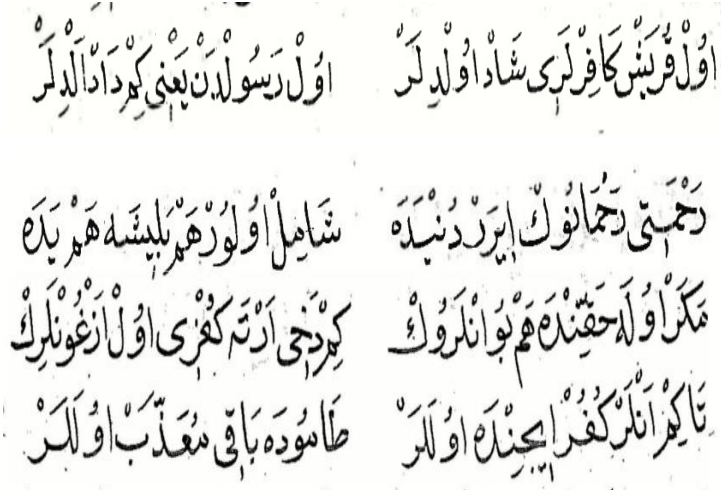 اوُلْ قُرَيْشْ كَافِرْلَرِى شَاذْ اوُلْدِلَرْ اوُلْ رَسُولْدَنْ يَعْنِى كِمْ دَادْ اَلْدِلَرْ
رَحْمَتِى رَحْمَانُوكْ اِيرَرْ دُنْيَدَه شَامِلْ اوُلُورْ هَمْ بَلِيشَه هَمْ يَدَه
مَكَرْ اوُلَه حَقِّنْدَه هَمْ بُو انْلَرُوكْ كِمْ دَخِى اَرْتَه كُفْرِى اوُلْ اَزْغُونْلَرِكْ
تَا كِمْ انْلَرْ كُفُرْ اِيچِنْدَه اوُلَلَرْ طَامُودَه بَاقِى مُعَذَّبْ اوُلَلَرْ